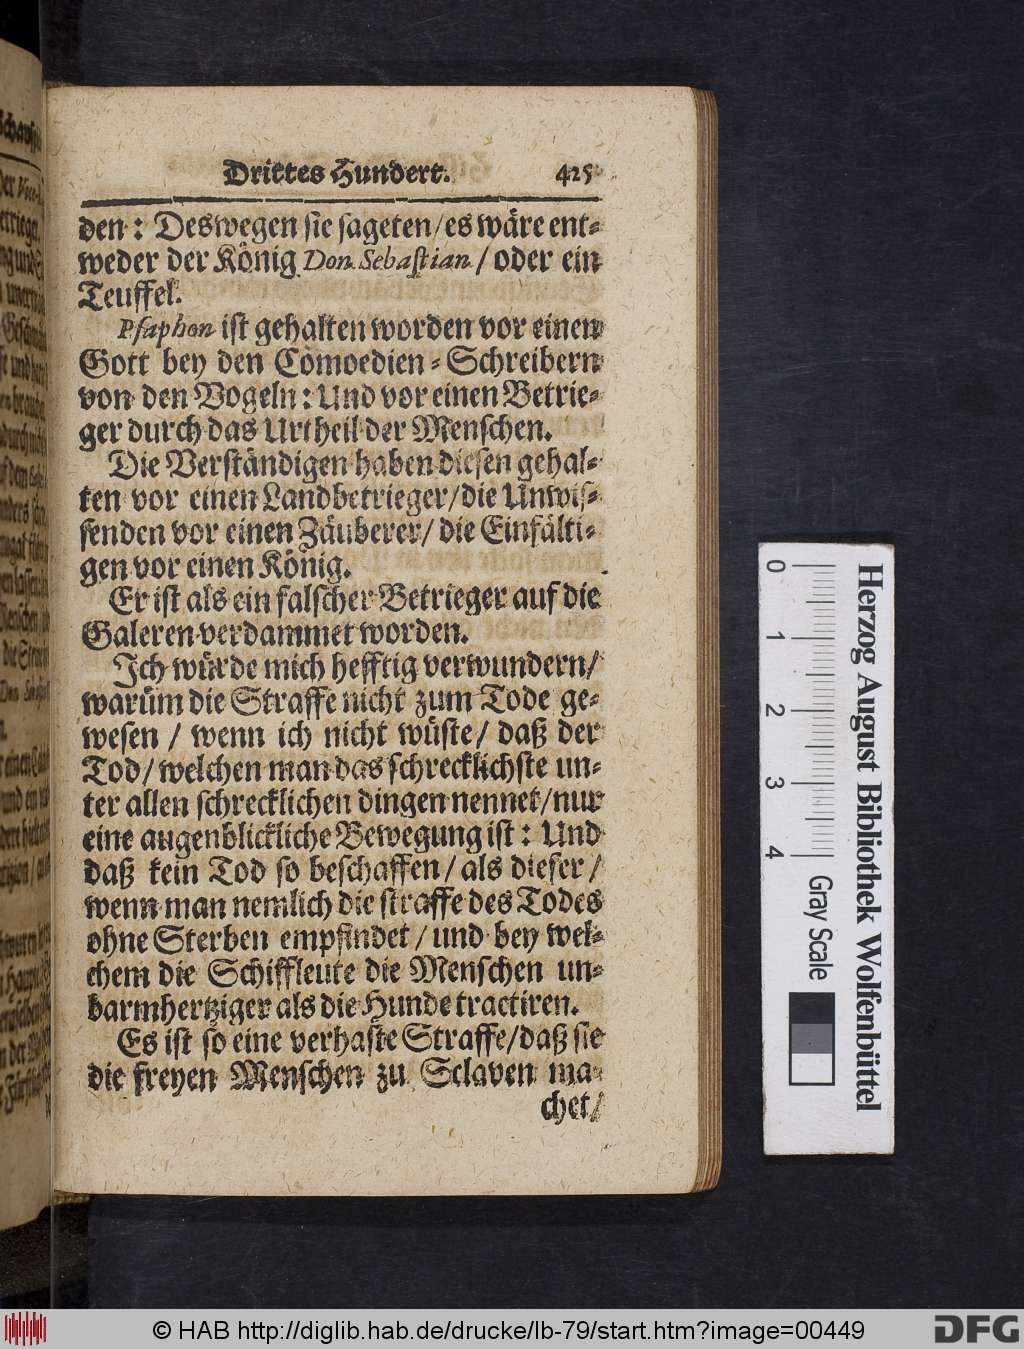 Drittes Hundert. 425
den: Deswegen sie sageten/es wäre ent-
weder der König Don Sebastian/oder ein
Teuffel.
Psaphon ist gehalten worden vor einen
Gott bey den Comoedien-Schreibern
von den Vogeln: Und vor einen Betrie-
ger durch das Urtheil der Menschen.
Die Verständigen haben diesen gehal-
ten vor einen Landbetrieger/die Unwis-
senden vor einen Zäuberer/die Einfälti-
gen vor einen König.
Er ist als ein falscher Betrieger auf die
Galeren verdammet worden.
Ich würde mich hefftig verwundern/
warüm die Straffe nicht zum Tode ge-
wesen / wenn ich nicht wüste/ daß der
Tod/welchen man das schrecklichste un-
ter allen schrecklichen dingen nennet/nur
eine augenblickliche Bewegung ist: Und
daß kein Tod so beschaffen/als dieser/
wenn man nemlich die straffe des Todes
ohne Sterben empfindet/und bey wel-
chem die Schiffleute die Menschen un-
barmhertziger als die Hunde tractiren.
Es ist so eine verhaste Straffe/daß sie
die freyen Menschen zu Sclaven ma-
chet/
0 1 2 3 4 Gray Scale
Herzog August Bibliothek Wolfenbüttel
© HAB http://diglib.hab.de/drucke/lb-79/start.htm?image=00449
DFG